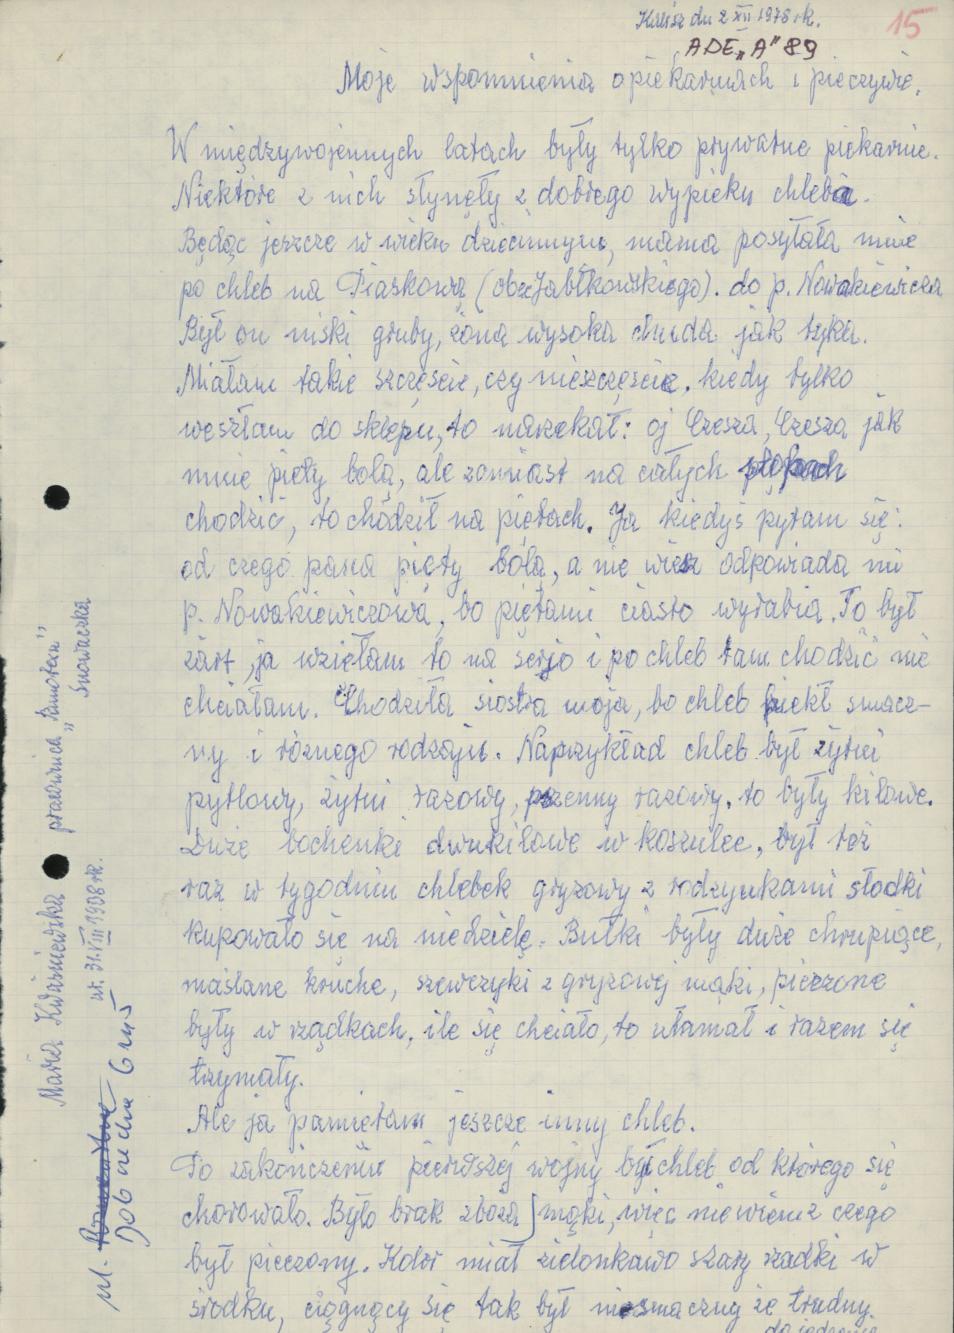 Kalisz dn 2 XII 1978 rk.
15
ADE „A" 89
Moje wspomnienia o piekarniach i pieczywie.
W międzywojennych latach były tylko prywatne piekarnie.
Niektóre z nich słynęły z dobrego wypieku chleba.
Będąc jeszcze w wieku dziecinnym, mama posyłała mnie
po chleb na Piaskową (obec Jabłkowskiego). do p. Nowakiewicza
Był on niski gruby, żona wysoka chuda jak tyka.
Miałam takie szczęście, czy nieszczęście, kiedy tylko
weszłam do sklepu, to narzekał: oj Czesza, Czesza jak
mnie pięty bolą, ale zamiast na całych stopach
chodzić, to chodził na piętach. Ja kiedyś pytam się:
od czego pana pięty bolą, a nie wiesz odpowiada mi
p. Nowakiewiczowa, bo piętami ciasto wyrabia. To był
żart, ja wzięłam to na serjo i po chleb tam chodzić nie
chciałam. Chodziła siostra moja, bo chleb piekł smacz-
ny i różnego rodzaju. Naprzykład chleb był żytni
pytlowy, żytni razowy, pszenny razowy, to były kilowe.
Duże bochenki dwukilowe w koszulce, był też
raz w tygodniu chlebek gryzowy z rodzynkami słodki
kupowało się na niedzielę. Bułki były duże chrupiące,
maślane kruche, szewczyki z gryzowej mąki, pieczone
były w rządkach, ile się chciało, to ułamał i razem się
trzymały.
Ale ja pamiętam jeszcze inny chleb.
Po zakończeniu pierwszej wojny był chleb od którego się
chorowało. Było brak zboża) mąki, więc nie wiem z czego
był pieczony. Kolor miał zielonkawo szary rzadki w
środku, ciągnący się tak był niesmaczny że trudny.
do jedzenia
Maria Kwaśniewska pracownica „Runotexu"
ur. 31.VIII 1908 rk. Smowarska
ul. Dobrzecka 6 m 5